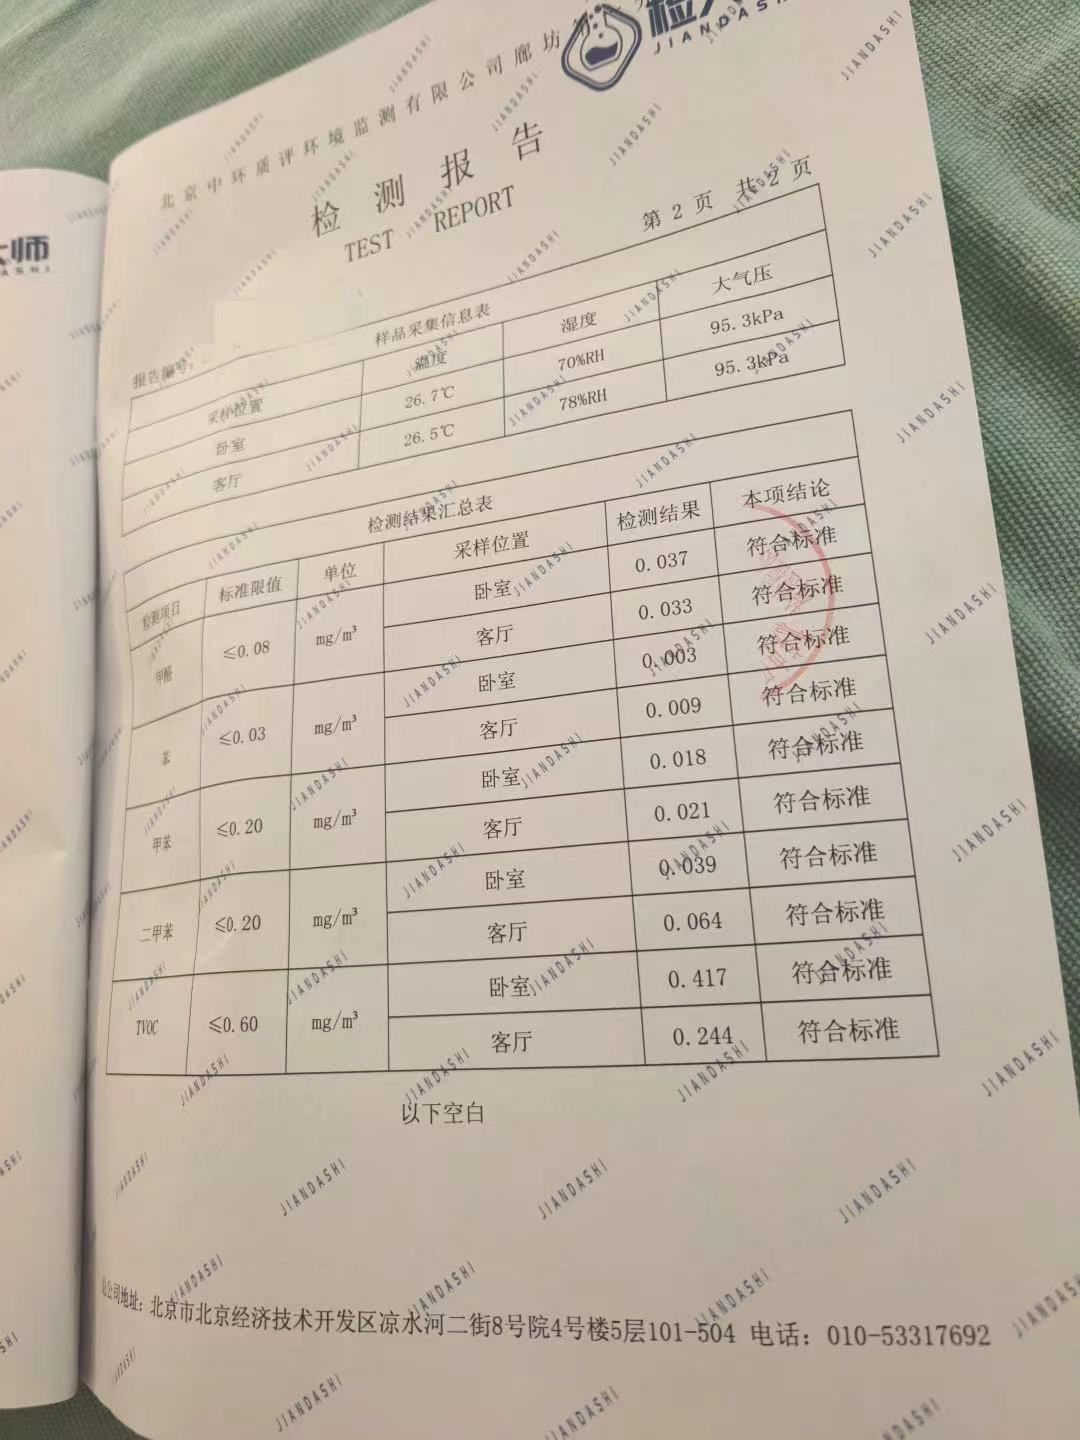 大师
检大
JIANDASHI
北京中环质评环境监测有限公司廊坊
检 测 报 告
TEST REPORT
第 2 页 共 2 页
报告编号:
样品采集信息表
采样位置 温度 湿度 大气压
卧室 26.7℃ 70%RH 95.3kPa
客厅 26.5℃ 78%RH 95.3kPa
检测结果汇总表
检测项目 标准限值 单位 采样位置 检测结果 本项结论
甲醛 ≤0.08 mg/m³ 卧室 0.037 符合标准
客厅 0.033 符合标准
苯 ≤0.03 mg/m³ 卧室 0.003 符合标准
客厅 0.009 符合标准
甲苯 ≤0.20 mg/m³ 卧室 0.018 符合标准
客厅 0.021 符合标准
二甲苯 ≤0.20 mg/m³ 卧室 0.039 符合标准
客厅 0.064 符合标准
TVOC ≤0.60 mg/m³ 卧室 0.417 符合标准
客厅 0.244 符合标准
以下空白
公司地址: 北京市北京经济技术开发区凉水河二街8号院4号楼5层101-504 电话: 010-53317692